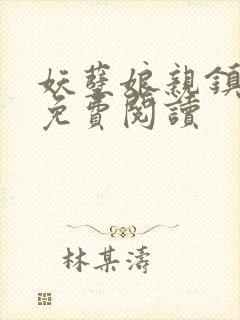 妖孽娘親鎮
免費閱讀
林某濤